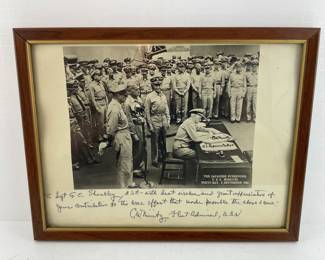 THE JAPANESE SURRENDER
U.S.S. MISSOURI
TOKYO BAY, 2 SEPTEMBER 1945
To Sgt G. C. with best wishes and great appreciation of
your contribution to the war effort that made possible the above scene
C.W. Nimitz, Fleet Admiral, U.S.N.